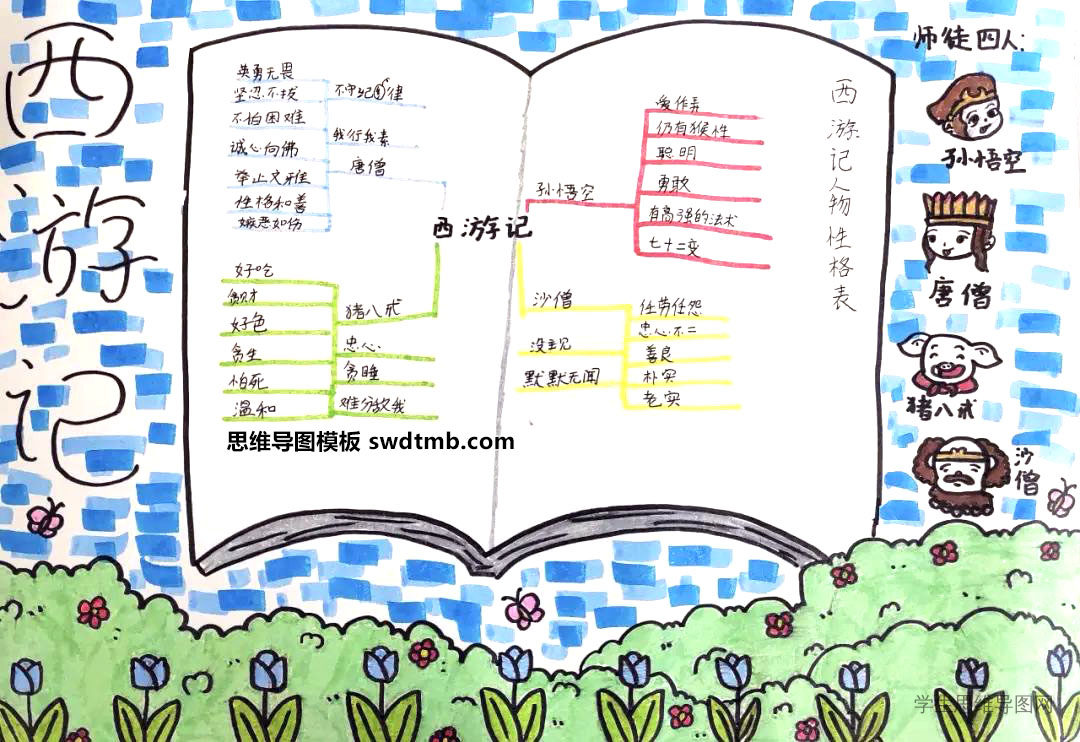 西游记
英勇无畏
坚忍不拔
不怕困难
诚心向佛
举止文雅
性格和善
嫉恶如仇
不守纪律
我行我素
唐僧
西游记
孙悟空
爱作弄
仍有猴性
聪明
勇敢
有高强的法术
七十二变
好吃
贪财
好色
贪生
怕死
温和
猪八戒
忠心
贪睡
难分敌我
沙僧
没主见
默默无闻
任劳任怨
忠心不二
善良
朴实
老实
西游记人物性格表
师徒四人:
孙悟空
唐僧
猪八戒
沙僧
思维导图模板 swdtmb.com
学生思维导图网